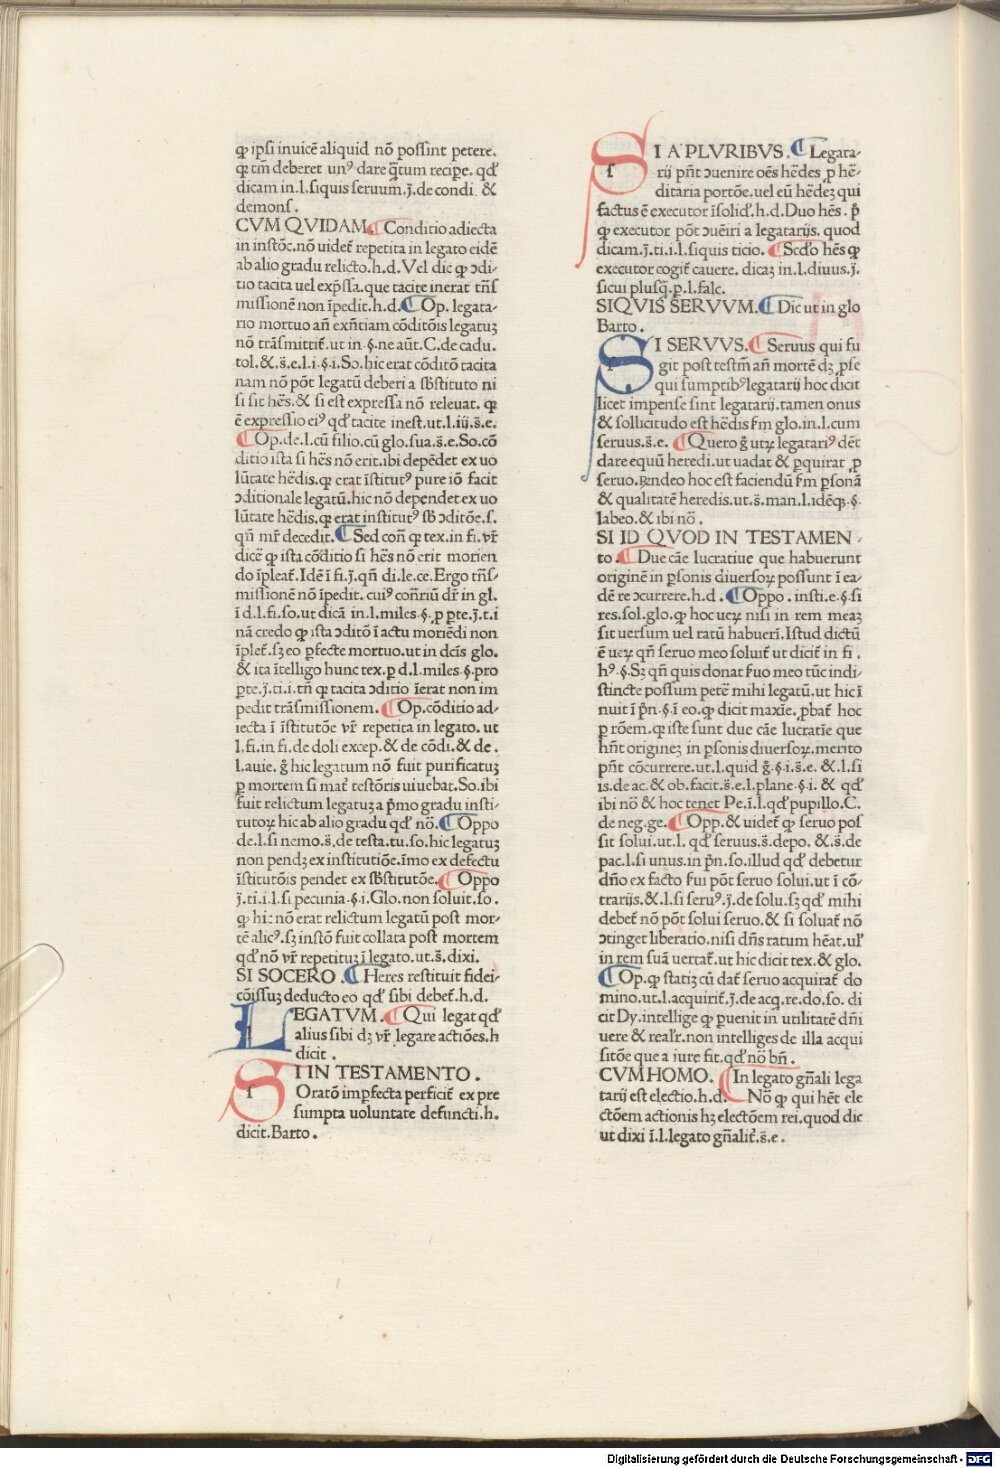 ꝙ ipſi inuicē aliquid nō poſſint petere.
ꝙ tm̄ deberet unꝰ dare q̄tum recipe. qđ
dicam in.l.ſiquis ſeruum.j̄.de condi. &
demonſ.
CVM QVIDAM. ¶ Conditio adiecta
in inſtōc.nō uidet̄ repetita in legato eidē
ab alio gradu relicto.h.d. Vel dic ꝙ ↄdi⸗
tio tacita uel exp̄ſſa.que tacite inerat trn̄ſ
miſſionē non īpedit.h.d. ¶ Op. legata⸗
rio mortuo an̄ exn̄tiam cōditōis legatuꝫ
nō trāſmittit̄.ut in.§.ne aūt.C.de cadu.
tol.&.s̄.e.l.i.§.i.So.hic erat cōditō tacita
nam nō pōt legatū deberi a ſb̄ſtituto ni
ſi ſit hēs.& ſi eſt expreſſa nō releuat. ꝙ
ē expreſſio eiꝰ qđ tacite ineſt.ut.l.iij.s̄.e.
¶ Op.de.l.cū filio.cū glo.ſua.s̄.e.So.cō
ditio iſta ſi hēs nō erit.ibi depēdet ex uo
lūtate hēdis.ꝙ erat īſtitutꝰ pure iō facit
ↄditionale legatū.hic nō dependet ex uo
lūtate hēdis.ꝙ erat inſtitutꝰ ſb̄ ↄditōe.ſ.
qn̄ mr̄ decedit. ¶ Sed con̄ ꝙ tex.in fi.vr̄
dicē ꝙ iſta cōditio ſi hēs nō erit morien
do īpleat̄.Idē ī fi.j̄.qn̄ di.le.ce.Ergo trn̄ſ⸗
miſſionē nō īpedit. cuiꝰ con̄riū dr̄ in gl.
ī d.l.fi.ſo.ut dicā in.l.miles.§.ꝓ pte.j̄.t.i
nā credo ꝙ iſta ↄditō ī actu moriēdi non
īplet̄.ſꝫ eo pfecte mortuo.ut in dcīs glo.
& ita ītelligo hunc tex.p d.l.miles.§.pro
pte.j̄.ti.i.tn̄ ꝙ tacita ↄditio īerat non im
pedit trāſmiſſionem. ¶ Op.cōditio ad⸗
iecta ī īſtitutōe vr̄ repetita in legato. ut
l.fi.in fi.de doli excep.& de cōdi.& de.
l.auie. ḡ hic legatum nō fuit purificatuꝫ
p mortem ſi mat̄ teſtōris uiuebat.So.ibi
fuit relictum legatuꝫ a p̄mo gradu inſti⸗
tutoꝝ hic ab alio gradu qđ nō. ¶ Oppo
de.l.ſi nemo.s̄.de teſta.tu.ſo.hic legatuꝫ
non pendꝫ ex inſtitutiōe.īmo ex defectu
īſtitutōis pendet ex ſb̄ſtitutōe. ¶ Oppo
j̄.ti.i.l.ſi pecunia.§.i.Glo.non ſoluit.ſo.
ꝙ hic nō erat relictum legatū poſt mor⸗
tē alicꝰ.ſꝫ inſtō fuit collata poſt mortem
qđ nō vr̄ repetituꝫ ī legato.ut.s̄.dixi.
SI SOCERO. ¶ Heres reſtituit fidei⸗
cōiſſuꝫ deducto eo qđ ſibi debet̄.h.d.
LEGATVM. ¶ Qui legat qđ
alius ſibi dꝫ vr̄ legare actiōes.h
dicit.
SI IN TESTAMENTO.
Oratō impfecta perficit̄ ex pre
ſumpta uoluntate defuncti.h.
dicit.Barto.
SI A PLVRIBVS. ¶ Legata⸗
rij pn̄t ↄuenire oēs hēdes ꝓ hē⸗
ditaria portōe.uel eū hēdeꝫ qui
factus ē executor īſolid̄.h.d.Duo hēs. p̄
ꝙ executor pōt ↄuēiri a legatarijs. quod
dicam.j̄.ti.i.l.ſiquis ticio. ¶ Scđo hēs ꝙ
executor cogit̄ cauere. dicaꝫ in.l.diuus.j̄.
ſicui pluſq̄.p.l.falc.
SIQVIS SERVVM. ¶ Dic ut in glo
Barto.
SI SERVVS. ¶ Seruus qui fu
git poſt teſtm̄ an̄ mortē dꝫ pſe
qui ſumptibꝰ legatarij hoc dicit
licet impenſe ſint legatarij.tamen onus
& ſollicitudo eſt hēdis ſm̄ glo.in.l.cum
ſeruus.s̄.e. ¶ Quero ḡ utꝝ legatariꝰ dēt
dare equū heredi.ut uadat & pquirat ꝓ
ſeruo.Rn̄deo hoc eſt faciendū ſm̄ pſonā
& qualitatē heredis.ut.s̄.man.l.idēqꝫ.§.
labeo.& ibi nō.
SI ID QVOD IN TESTAMEN⸗
to. ¶ Due cāe lucratiue que habuerunt
originē in pſonis diuerſoꝝ poſſunt ī ea⸗
dē re ↄcurrere.h.d. ¶ Oppo. inſti.e.§.ſi
res.ſol.glo.ꝙ hoc ueꝝ niſi in rem meaꝫ
ſit uerſum uel ratū habuerī.Iſtud dictū
ē ueꝝ qn̄ ſeruo meo ſoluit̄ ut dicit̄ in fi.
hꝰ.§.Sꝫ qn̄ quis donat ſuo meo tūc indi⸗
ſtincte poſſum petē mihi legatū.ut hic ī
nuit ī pn̄.§.ī eo.ꝙ dicit maxīe. pbat̄ hoc
p rōem.ꝙ iſte ſunt due cāe lucratīe que
hn̄t origineꝫ in pſonis diuerſoꝝ.merito
pn̄t cōcurrere.ut.l.quid ḡ.§.i.s̄.e. &.l.ſi
is.de ac.& ob.facit.s̄.e.l.plane.§.i. & qđ
ibi nō & hoc tenet Pe.ī.l.qđ pupillo.C.
de neg.ge. ¶ Opp.& uidet̄ ꝙ ſeruo poſ
ſit ſolui.ut.l. qđ ſeruus.s̄.depo. & s̄.de
pac.l.ſi unus.in pn̄.ſo.illud qđ debetur
dn̄o ex facto ſui pōt ſeruo ſolui.ut ī cō⸗
trarijs.& l.ſi ſeruꝰ.j̄.de ſolu.ſꝫ qđ mihi
debet̄ nō pōt ſolui ſeruo.& ſi ſoluat̄ nō
ↄtinget liberatio.niſi dn̄s ratum hēat.ul̄
in rem ſuā uertat̄.ut hic dicit tex.& glo.
¶ Op.ꝙ ſtatiꝫ cū dat̄ ſeruo acquirat̄ do
mino.ut.l.acquirit̄.j̄.de acq.re.do.ſo. di
cit Dy.intellige ꝙ puenit in utilitatē dn̄i
uere & realr̄.non intelliges de illa acqui
ſitōe que a iure fit.qđ nō bn̄.
CVM HOMO. ¶ In legato gn̄ali lega
tarij eſt electio.h.d. ¶ Nō ꝙ qui hēt ele
ctōem actionis hꝫ electōem rei.quod dic
ut dixi ī.l.legato gn̄alit̄.s̄.e.
Digitalisierung gefördert durch die Deutsche Forschungsgemeinschaft - DFG